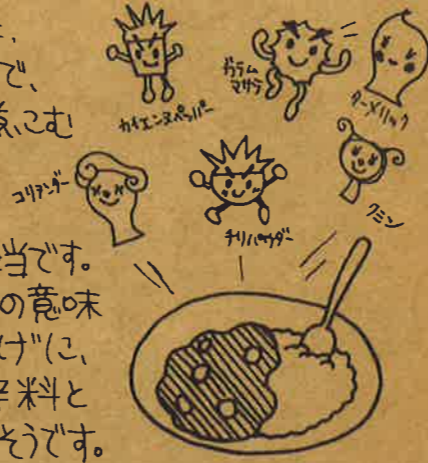 で、
煮こむ
当です。
の意味
げに、
辛料と
そうです。
カイエンヌペッパー
ガラム
マサラ
ターメリック
コリアンダー
チリパウダー
クミン